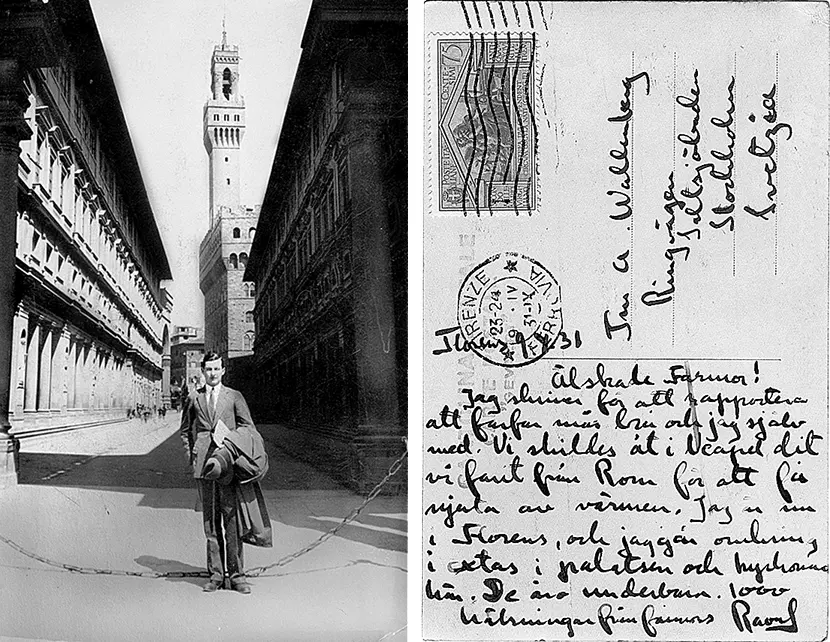 75
FIRENZE FERROVIA
23-24
9 IV
31-IX
Fru A. Wallenberg
Ringvägen
Saltsjöbaden
Stockholm
Svetzia
Florens 9/4 31
Älskade Farmor!
Jag skriver för att rapportera
att farfar mår bra och jag själv
med. Vi skildes åt i Neapel dit
vi farit från Rom för att få
njuta av värmen. Jag är nu
i Florens, och jag går omkring
i extas i palatsen och kyrkorna
här. De äro underbara. 1000
hälsningar från farmors Raoul